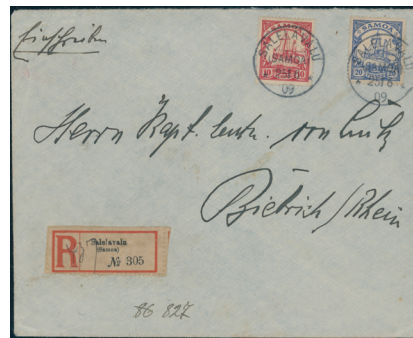 Einschreiben
SAMOA
10
SALELAVALU
SAMOA
25/6
09
SAMOA
20
20
09
Herrn Kapt. leutn. von
Biebrich/Rhein
R
Salelavalu
(Samoa)
№ 305
86 827